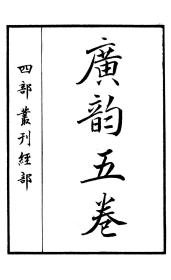 廣韵五卷
四部叢刊經部